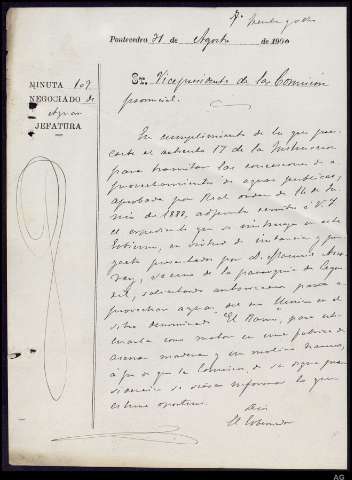 Pontevedra 31 de Agosto de 1900
MINUTA 107
NEGOCIADO de
Aguas
JEFATURA
Sr. Vicepresidente de la Comisión
provincial.
En cumplimiento de lo que pre-
ceptúa el artículo 17 de la Instrucción
para tramitar las concesiones de a-
provechamientos de aguas públicas,
aprobada por Real orden de 14 de Ju-
nio de 1883, adjunto remito á V.S.
el expediente que se instruye en este
Gobierno, en virtud de instancia y pro-
yecto presentados por D. Manuel
vecino de la parroquia de
solicitando autorización para a-
provechar aguas del en el
sitio denominado "El para uti-
lizarla como motor en una fábrica de
aserrar madera y un molino harinero,
á fin de que la Comisión, de se digna
se sirva informar lo que
estime oportuno.
El Gobernador
AG